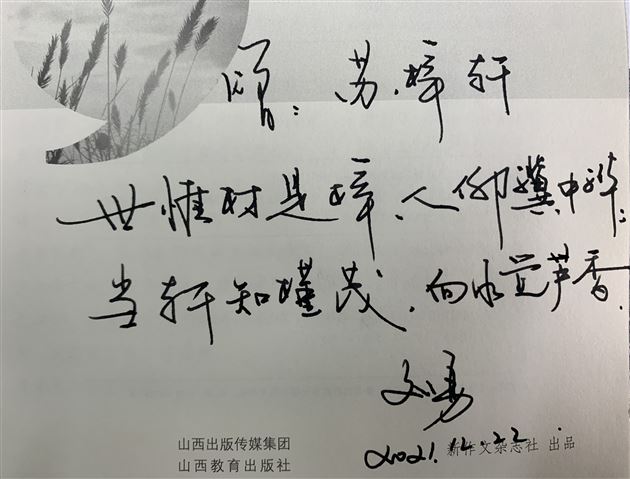 赠：苏梓轩
世惟材是梓，人仰冀中
当轩知槿茂，向水觉芦香。
刘勇
2021.12.22.
山西出版传媒集团
山西教育出版社
新作文杂志社 出品